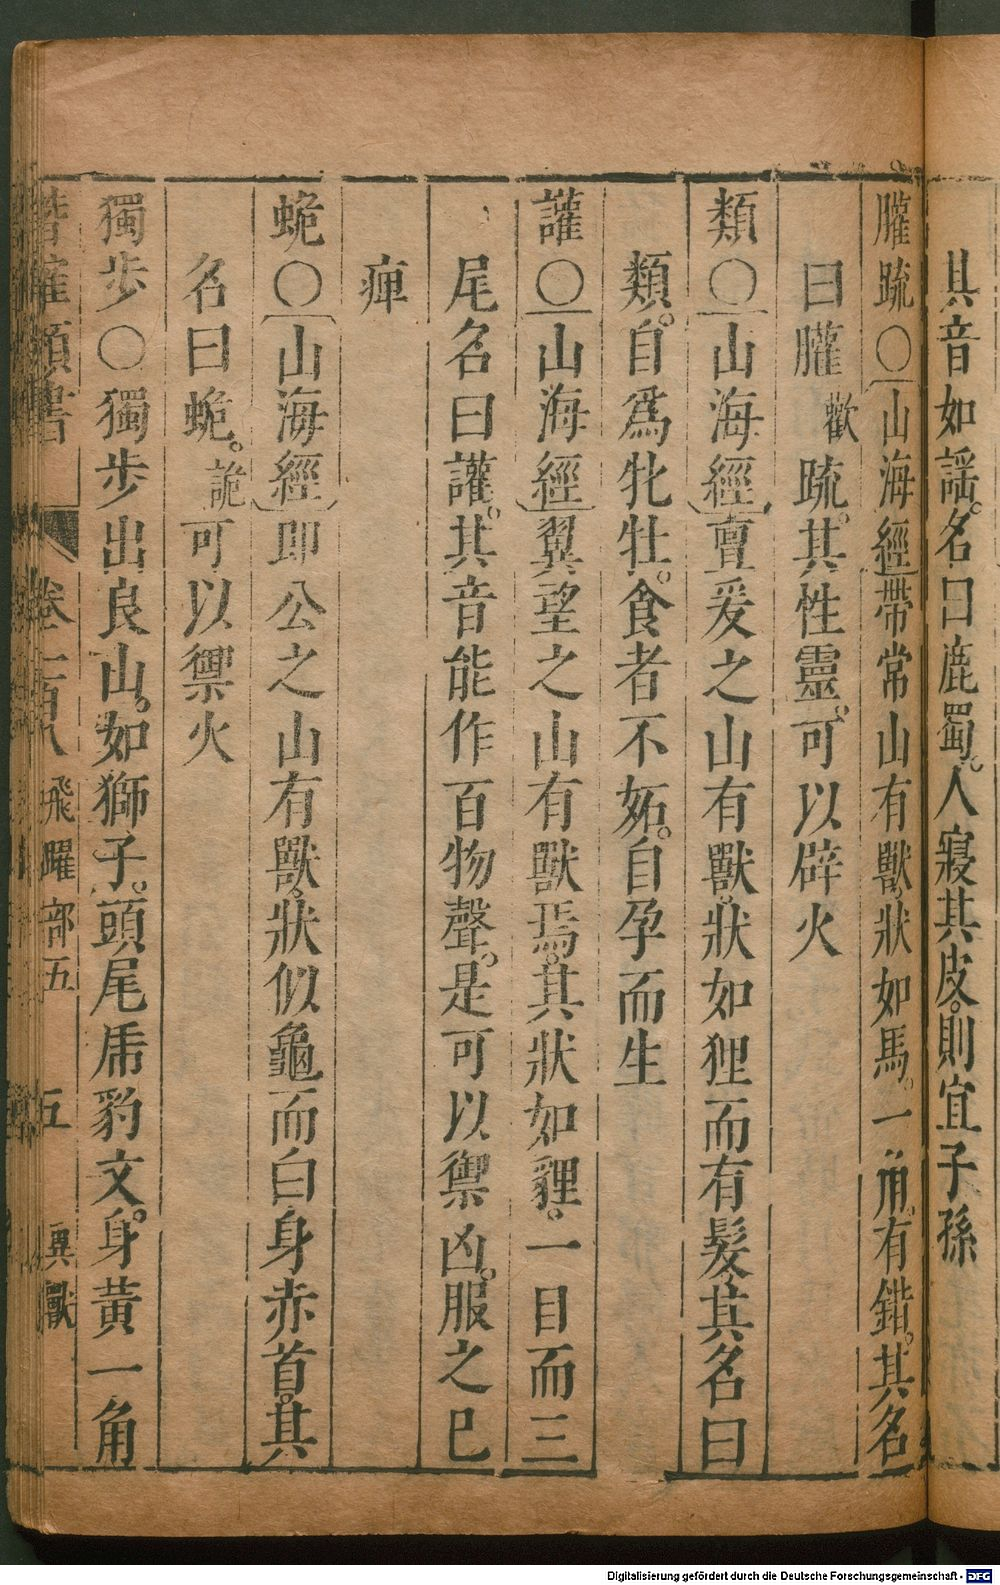 其音如謡。名曰鹿蜀。人寢其皮。則宜子孫
䑏疏〇山海經帶常山有獸狀如馬。一角。有錯。其名
曰䑏歡疏。其性靈。可以辟火
類〇山海經亶爰之山有獸。狀如狸而有髮其名曰
類。自爲牝牡。食者不妬。自孕而生
讙〇山海經翼望之山有獸焉。其狀如貍。一目而三
尾名曰讙。其音能作百物聲。是可以禦凶。服之已
癉
蛫〇山海經即公之山有獸狀似龜而白身赤首。其
名曰蛫。詭可以禦火
獨步〇獨步出良山。如獅子。頭尾虎豹文。身黃一角
潛確類書 卷一百八 飛躍部五 五 異獸
Digitalisierung gefördert durch die Deutsche Forschungsgemeinschaft - DFG